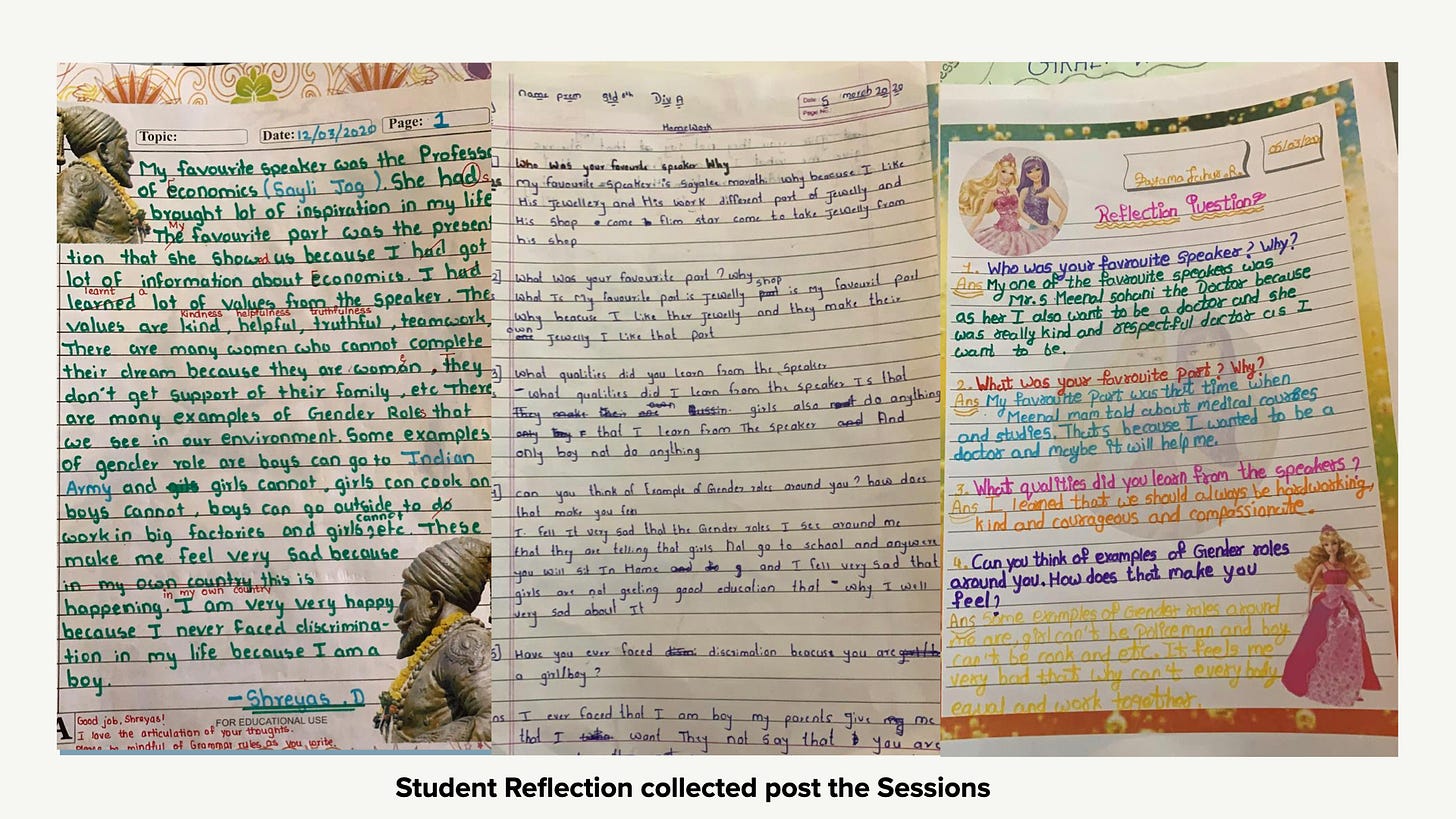 Topic:
Date: 12/03/2020
Page: 1
My favourite speaker was the Profess
of economics (Sayli Jog). She had s
brought lot of inspiration in my life
My
The favourite part was the presen
tion that she showed us because I had got
lot of information about Economics. I had
learnt a
learned lot of values from the speaker. The
kindness helpfulness truthfulness
values are kind, helpful, truthful, teamwork.
There are many women who cannot complete
their dream because they are women, they
don't get support of their family, etc There
are many examples of Gender Roles that
we see in our environment. Some examples
of gender role are boys can go to Indian
Army and girls cannot, girls can cook an
boys cannot, boys can go outside to do
cannot
work in big factories and girls, etc. These
make me feel very sad because
in my own country this is
in my own country
happening. I am very very happy
because I never faced discrimina-
tion in my life because I am a
boy.
- Shreyas .D
Good job, Shreyas!
FOR EDUCATIONAL USE
I love the articulation of your thoughts.
Please be mindful of Grammar rules as you write.
Name Prem Std 8th Div A
Date: 5 march 2020
Page No.
HomeWork
1] Who was your favourite speaker Why
My favourite speaker is sayalee marath. why beacuse I like
His Jewellery and His work different part of Jewelly and
His shop come flim star come to take Jewelly from
his shop
2] What was your favourite part? why
shop
What Is My favourite part is Jewelly part is my favourit part
Why beacuse I like ther Jewelly and they make their
own
Jewelly I like that part
3] What qualities did you learn from the speaker
- what qualities did I learn from the speaker Is that
own
They make their are Bussin. girls also not do anything
only boy that I learn from The speaker and And
only boy not do anything
4] can you think of Example of Gender roles around you? how does
that make you feel
I fell It very sad that the Gender roles I see around me
that they are telling that girls Not go to school and anywere
you will sit In Home and do g and I fell very sad that
girls are not geeting good education that - why I well
very sad about It
5] Have you ever faced discrimation beacuse you are
a girl/boy?
I ever faced that I am boy my parents give me
that I want They not say that you are
05/03/2020
Reflection Questions
1. Who was your favrouite Speaker? Why?
Ans My one of the favrouite speakers was
Mr.s Meenal sohani the Doctor because
as her I also want to be a doctor and she
was really kind and respectful doctor as I
want to be.
2. What was your favrouite Part? Why?
Ans My favrouite Part was that time when
Meenal mam told about medical courses
and studies. That's because I wanted to be a
doctor and maybe it will help me.
3. What qualities did you learn from the speakers?
Ans I learned that we should always be hardworking,
kind and courageous and compassionate.
4. Can you think of examples of Gender roles
around you. How does that make you
feel?
Ans Some examples of Gender roles around
me are, girl can't be Policeman and boy
can't be cook and etc. It feels me
very bad that why can't every body
equal and work together.
Student Reflection collected post the Sessions